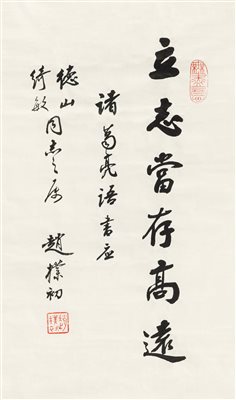 立志當存高遠
諸葛亮語書應
德山
綺敏同志之屬
趙樸初